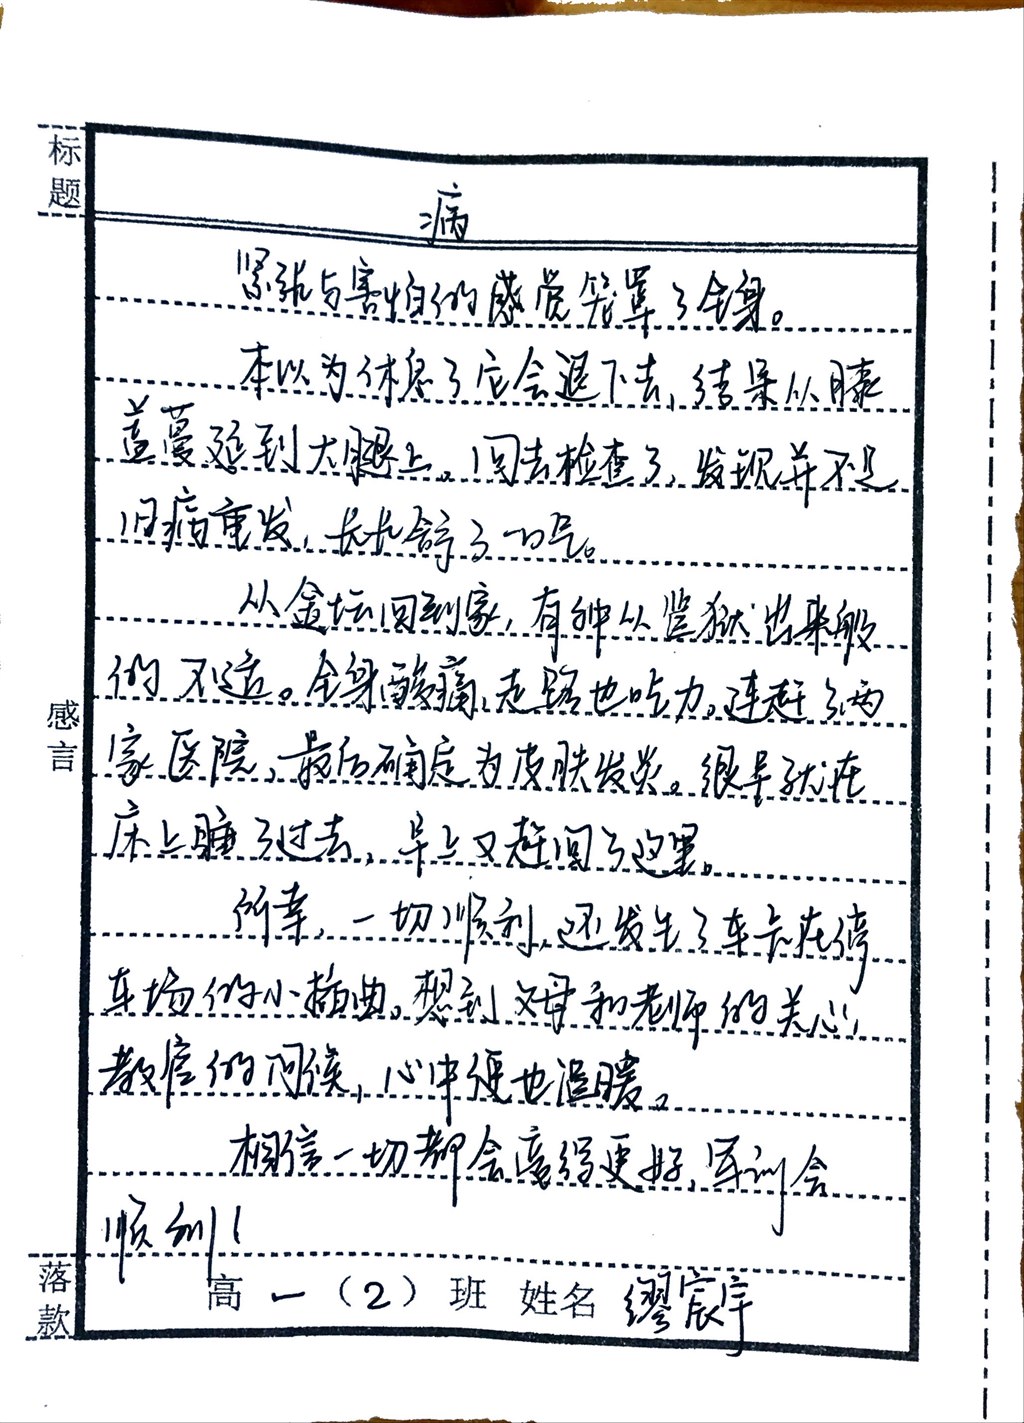 标题
病
紧张与害怕的感觉笼罩了全身。
本以为休息了它会退下去,结果从膝
盖蔓延到大腿上。回去检查了,发现并不是
旧病重发,长长舒了一口气。
从金坛回到家,有种从监狱出来般
的不适。全身酸痛,走路也吃力。连赶了两
家医院,最后确定为皮肤发炎。很早就在
床上睡了过去,早上又赶回了这里。
所幸,一切顺利,还发生了车卡在停
车场的小插曲。想到父母和老师的关心,
教官的问候,心中便也温暖。
相信一切都会变得更好,军训会
顺利!
感言
落款
高一(2)班 姓名 缪宸宇